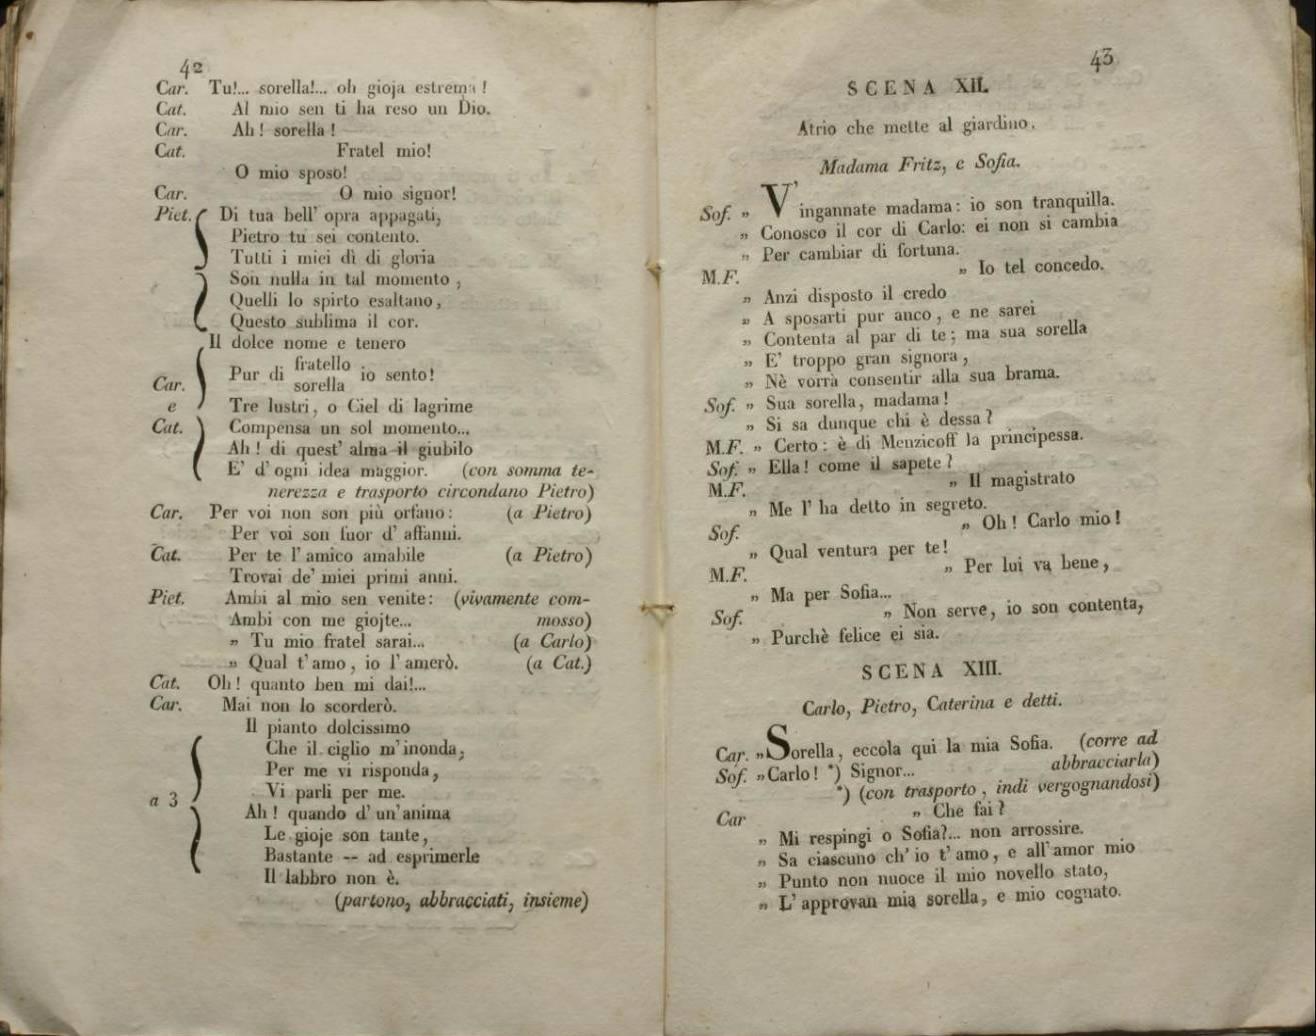 42
Car. Tu!... sorella!... oh gioja estrema!
Cat. Al mio sen ti ha reso un Dio.
Car. Ah! sorella!
Cat. Fratel mio!
O mio sposo!
Car. O mio signor!
Piet. Di tua bell' opra appagati,
Pietro tu sei contento.
Tutti i miei dì di gloria
Son nulla in tal momento,
Quelli lo spirto esaltano,
Questo sublima il cor.
Il dolce nome e tenero
fratello
Pur di io sento!
Car. sorella
e Tre lustri, o Ciel di lagrime
Cat. Compensa un sol momento...
Ah! di quest' alma il giubilo
E' d' ogni idea maggior. (con somma te-
nerezza e trasporto circondano Pietro)
Car. Per voi non son più orfano: (a Pietro)
Per voi son fuor d' affanni.
Cat. Per te l' amico amabile (a Pietro)
Trovai de' miei primi anni.
Piet. Ambi al mio sen venite: (vivamente com-
Ambi con me giojte... mosso)
„ Tu mio fratel sarai... (a Carlo)
„ Qual t' amo, io l' amerò. (a Cat.)
Cat. Oh! quanto ben mi dai!...
Car. Mai non lo scorderò.
Il pianto dolcissimo
Che il ciglio m' inonda,
Per me vi risponda,
a 3 Vi parli per me.
Ah! quando d' un' anima
Le gioje son tante,
Bastante -- ad esprimerle
Il labbro non è.
(partono, abbracciati, insieme)
43
SCENA XII.
Atrio che mette al giardino.
Madama Fritz, e Sofia.
Sof. „ V' ingannate madama: io son tranquilla.
„ Conosco il cor di Carlo: ei non si cambia
„ Per cambiar di fortuna.
M.F. „ Io tel concedo.
„ Anzi disposto il credo
„ A sposarti pur anco, e ne sarei
„ Contenta al par di te; ma sua sorella
„ E' troppo gran signora,
„ Nè vorrà consentir alla sua brama.
Sof. „ Sua sorella, madama!
„ Si sa dunque chi è dessa?
M.F. „ Certo: è di Menzicoff la principessa.
Sof. „ Ella! come il sapete?
M.F. „ Il magistrato
„ Me l' ha detto in segreto.
Sof. „ Oh! Carlo mio!
„ Qual ventura per te!
M.F. „ Per lui va bene,
„ Ma per Sofia...
Sof. „ Non serve, io son contenta,
„ Purchè felice ei sia.
SCENA XIII.
Carlo, Pietro, Caterina e detti.
Car. „ Sorella, eccola qui la mia Sofia. (corre ad
abbracciarla)
Sof. „ Carlo! *) Signor...
*) (con trasporto, indi vergognandosi)
Car „ Che fai?
„ Mi respingi o Sofia?... non arrossire.
„ Sa ciascuno ch' io t' amo, e all' amor mio
„ Punto non nuoce il mio novello stato,
„ L' approvan mia sorella, e mio cognato.